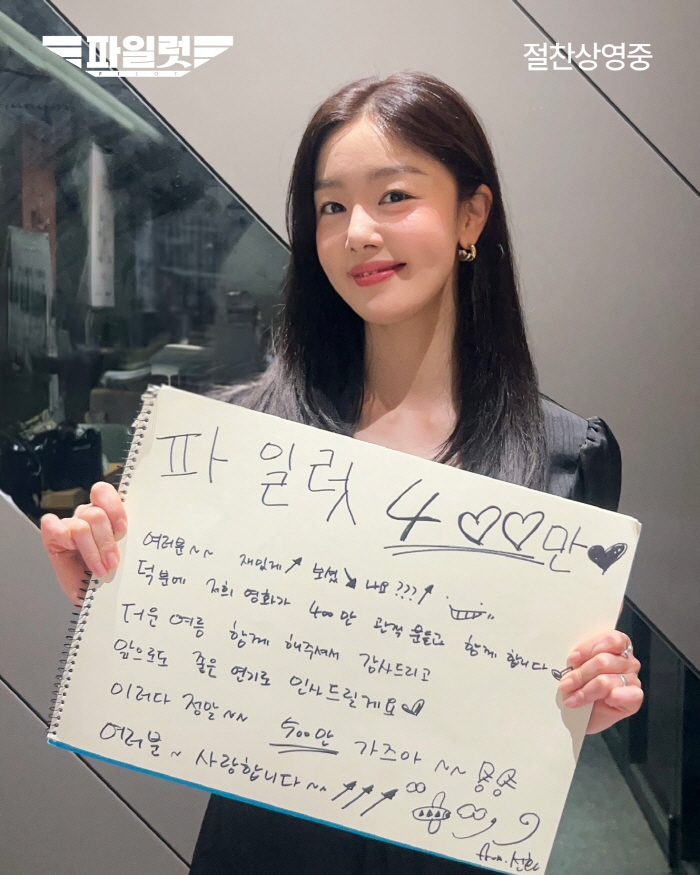 파일럿
PILOT
절찬상영중
파일럿 400만
여러분~~ 재밌게 보셨나요???
덕분에 저희 영화가 400만 관객 분들과 함께 합니다
더운 여름 함께 해주셔서 감사드리고
앞으로도 좋은 연기로 인사드릴게요
이러다 정말~~ 500만 가즈아~~
여러분~ 사랑합니다~~
from.